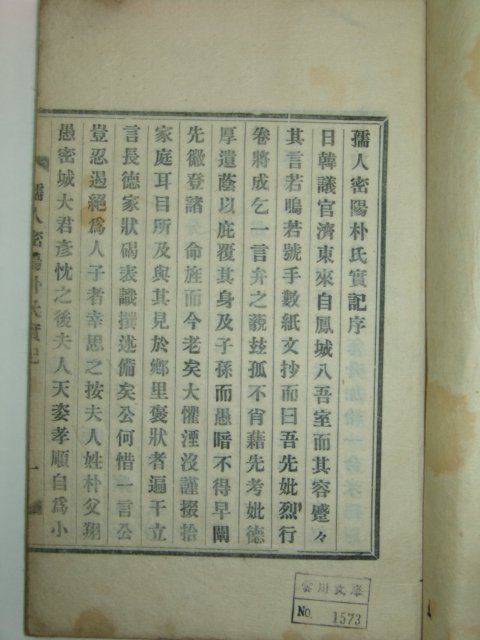 孺人密陽朴氏實記序
日韓議官濟東來自鳳城入吾室而其容蹙々
其言若鳴若號手數紙文抄而曰吾先妣烈行
卷將成乞一言弁之藐玆孤不肖藉先考妣德
厚遺蔭以庇覆其身及子孫而愚暗不得早闡
先徽登諸 命旌而今老矣大懼湮沒謹掇拾
家庭耳目所及與其見於鄕里褒狀者遍干立
言長德家狀碣表識撰述備矣公何惜一言公
豈忍遏絕爲人子者幸思之按夫人姓朴父翔
愚密城大君彦忱之後夫人天姿孝順自爲小
孺人密陽朴氏實記 一
雲川文庫
No. 1573